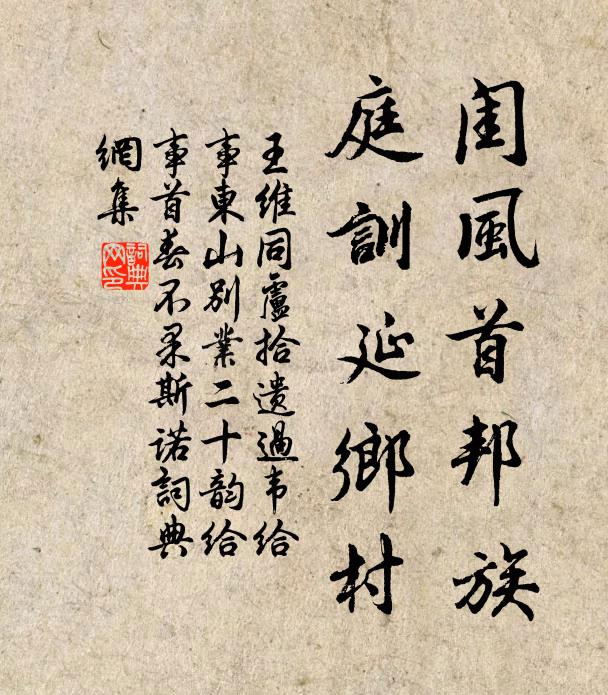 闺風首邦族
庭訓延鄉村
王維同盧拾遗過韦给
事東山別業二十韵给
事首春不果斯诺詞典
網集
詞典网印